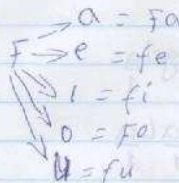 a = Fa
F e = fe
i = fi
o = Fo
u = fu